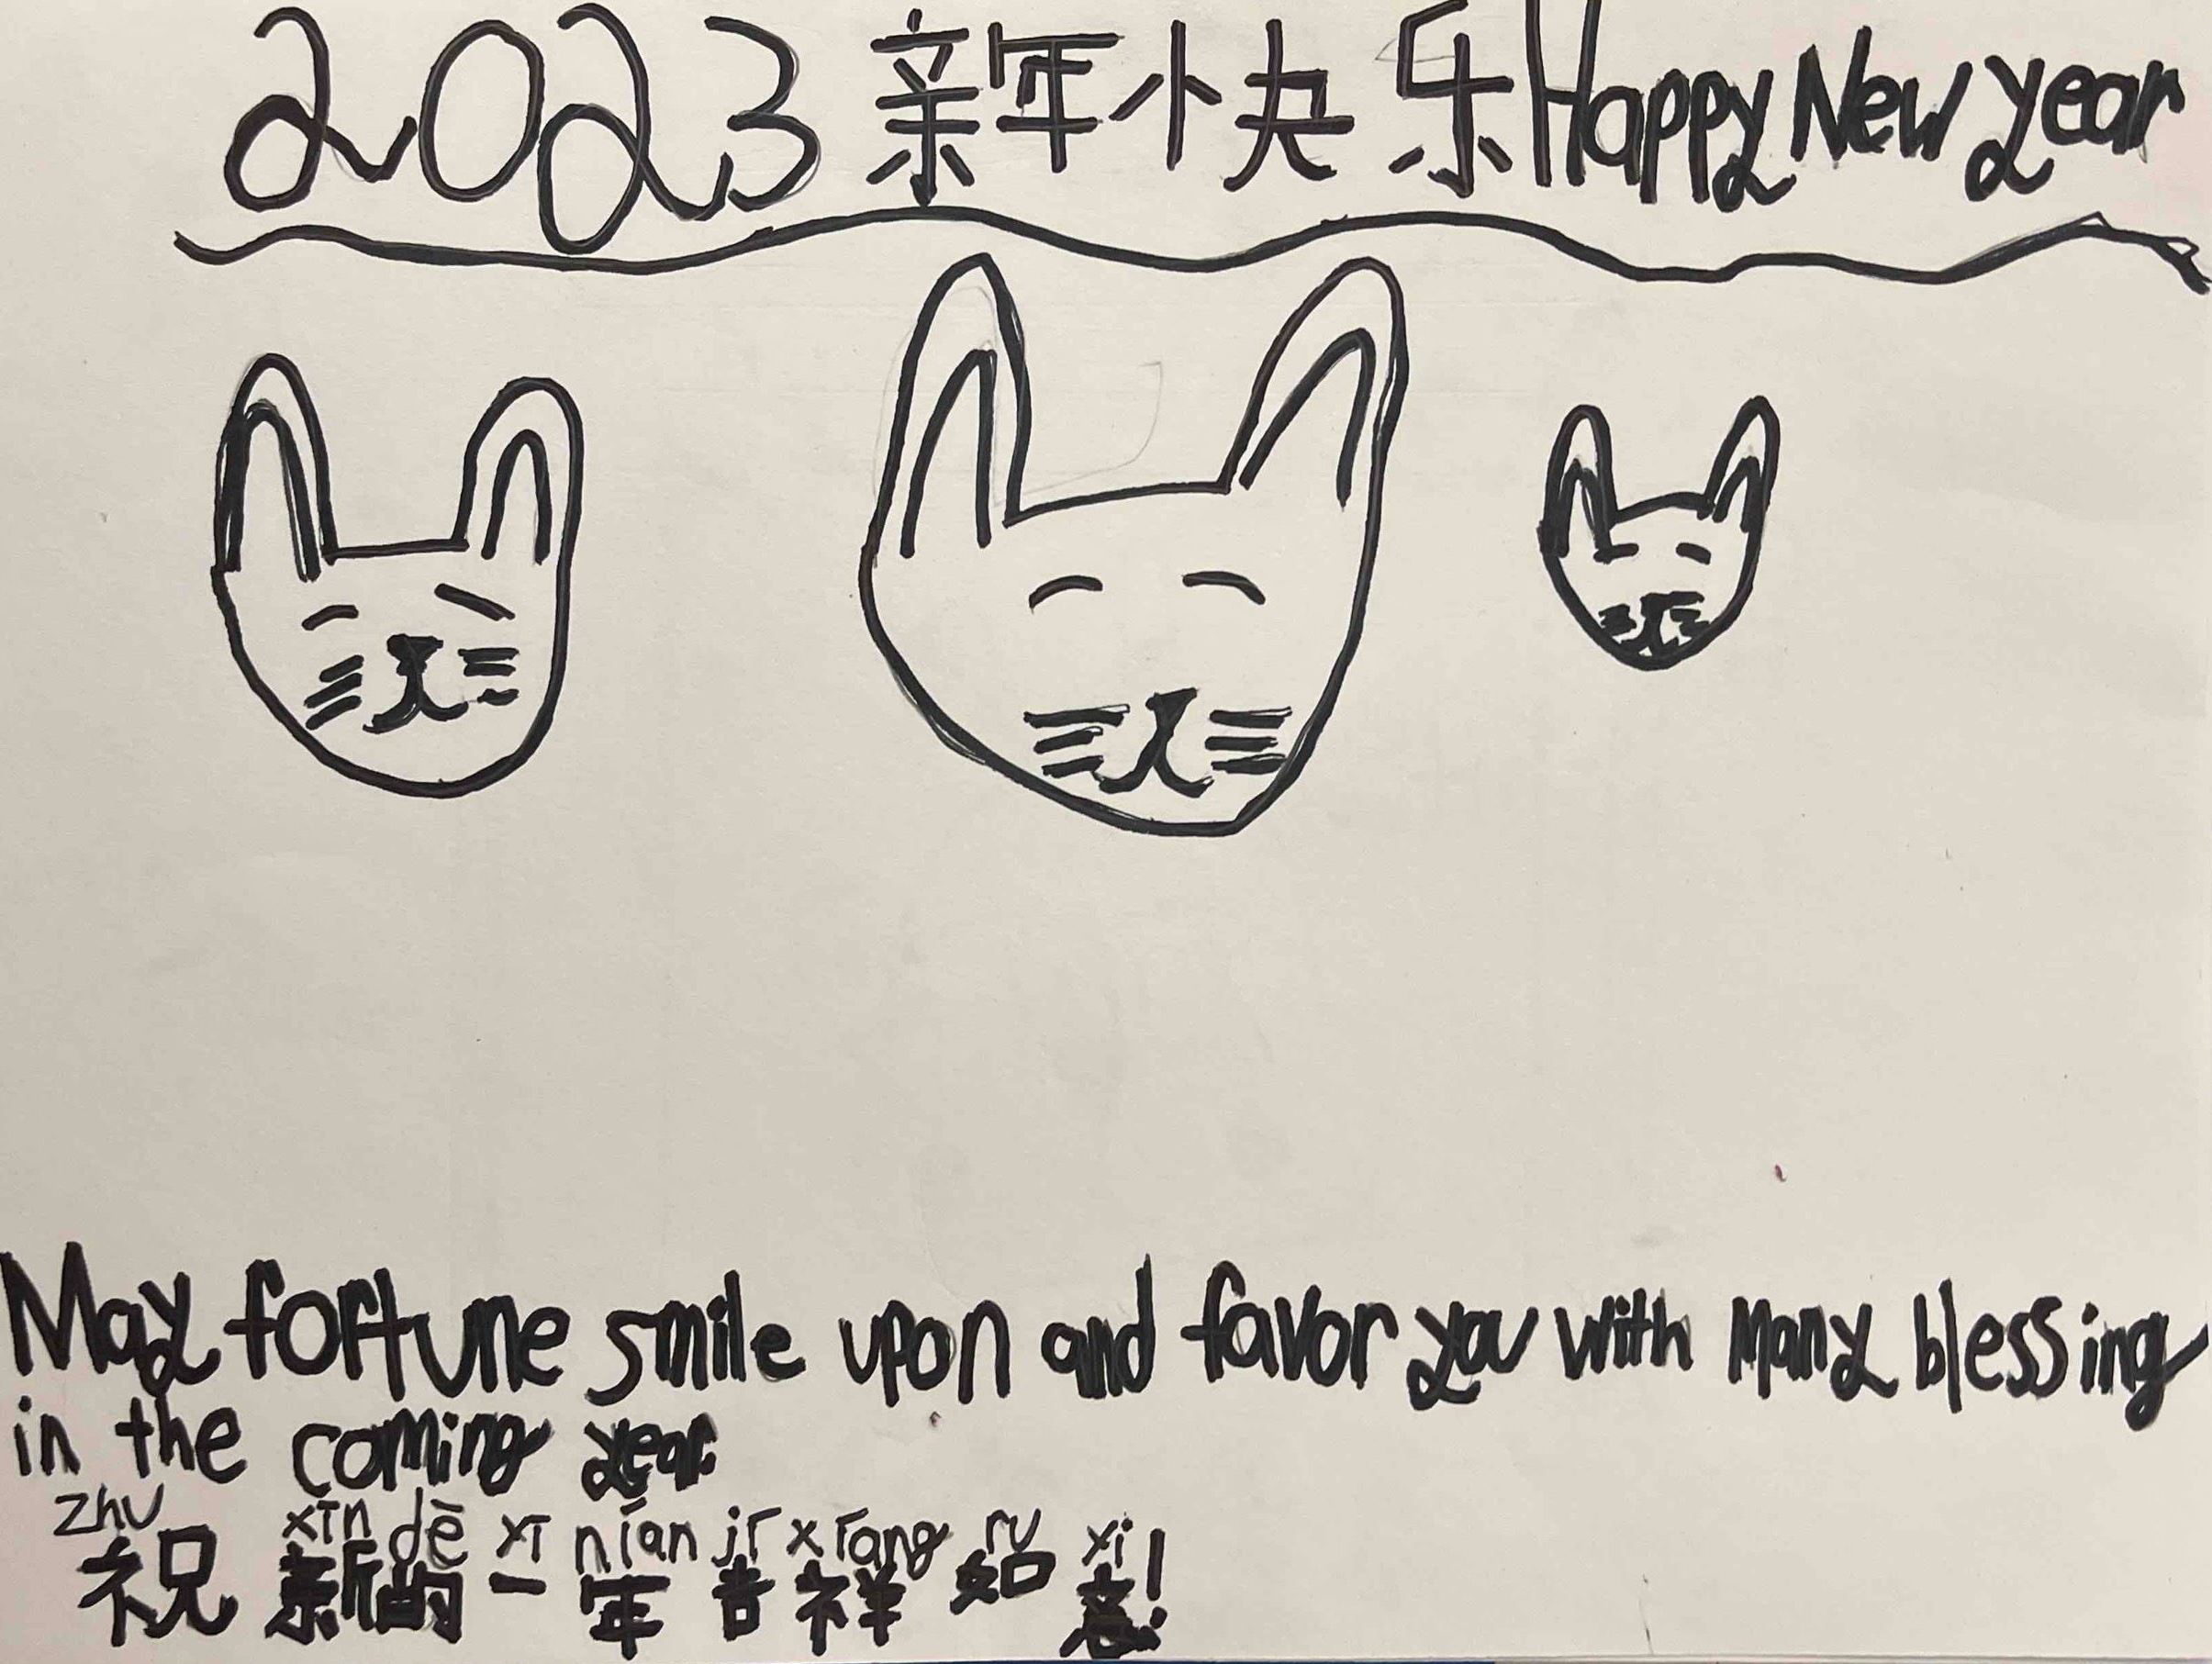 2023 亲年小夬 乐 Happy New year
May fortune smile upon and favor you with many blessing
in the coming year
zhu xīn dē xī nían jī xīang ru xi
祝 新的一年吉祥如意!